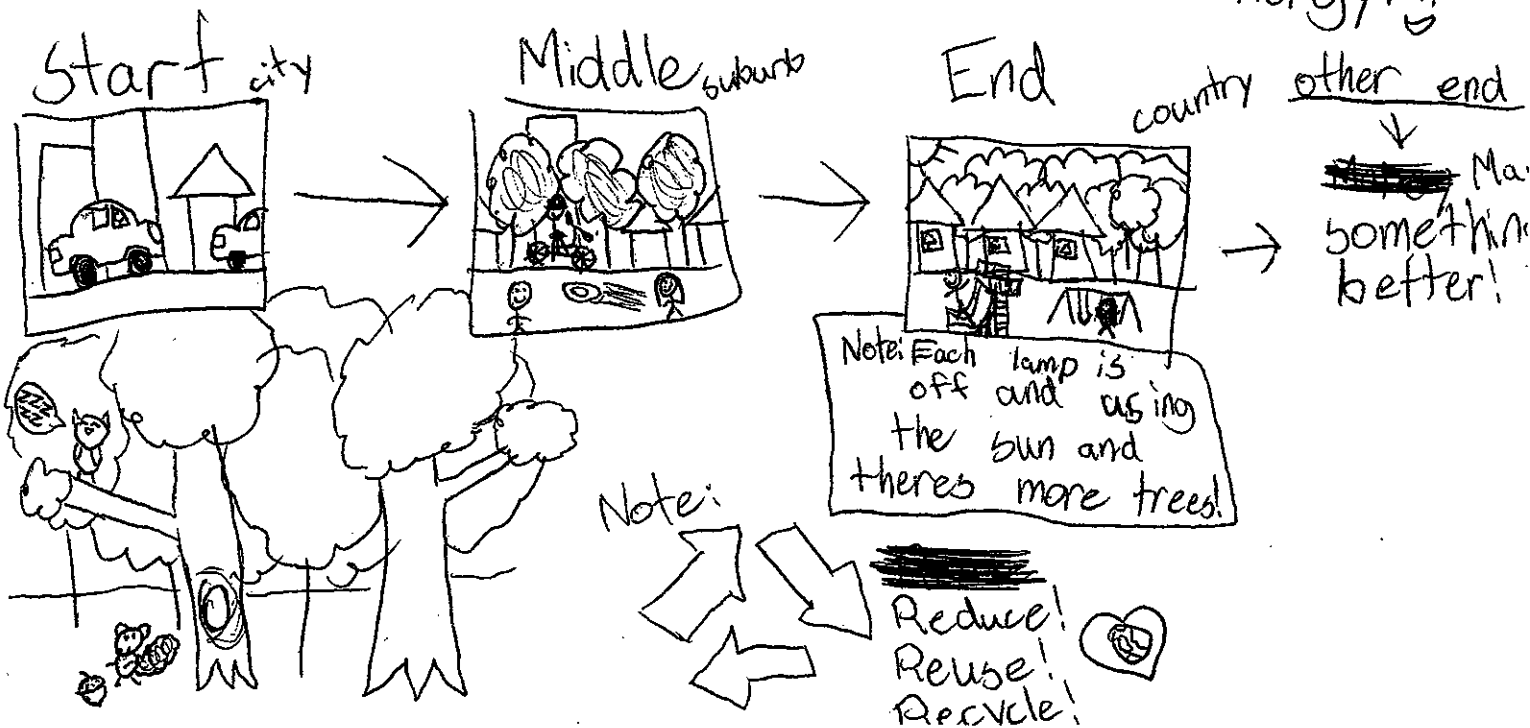 Start city
Middle suburb
End
country
other end
something
better!
Note: Each lamp is
off and using
the sun and
theres more trees!
Note:
Reduce!
Reuse!
Recycle!